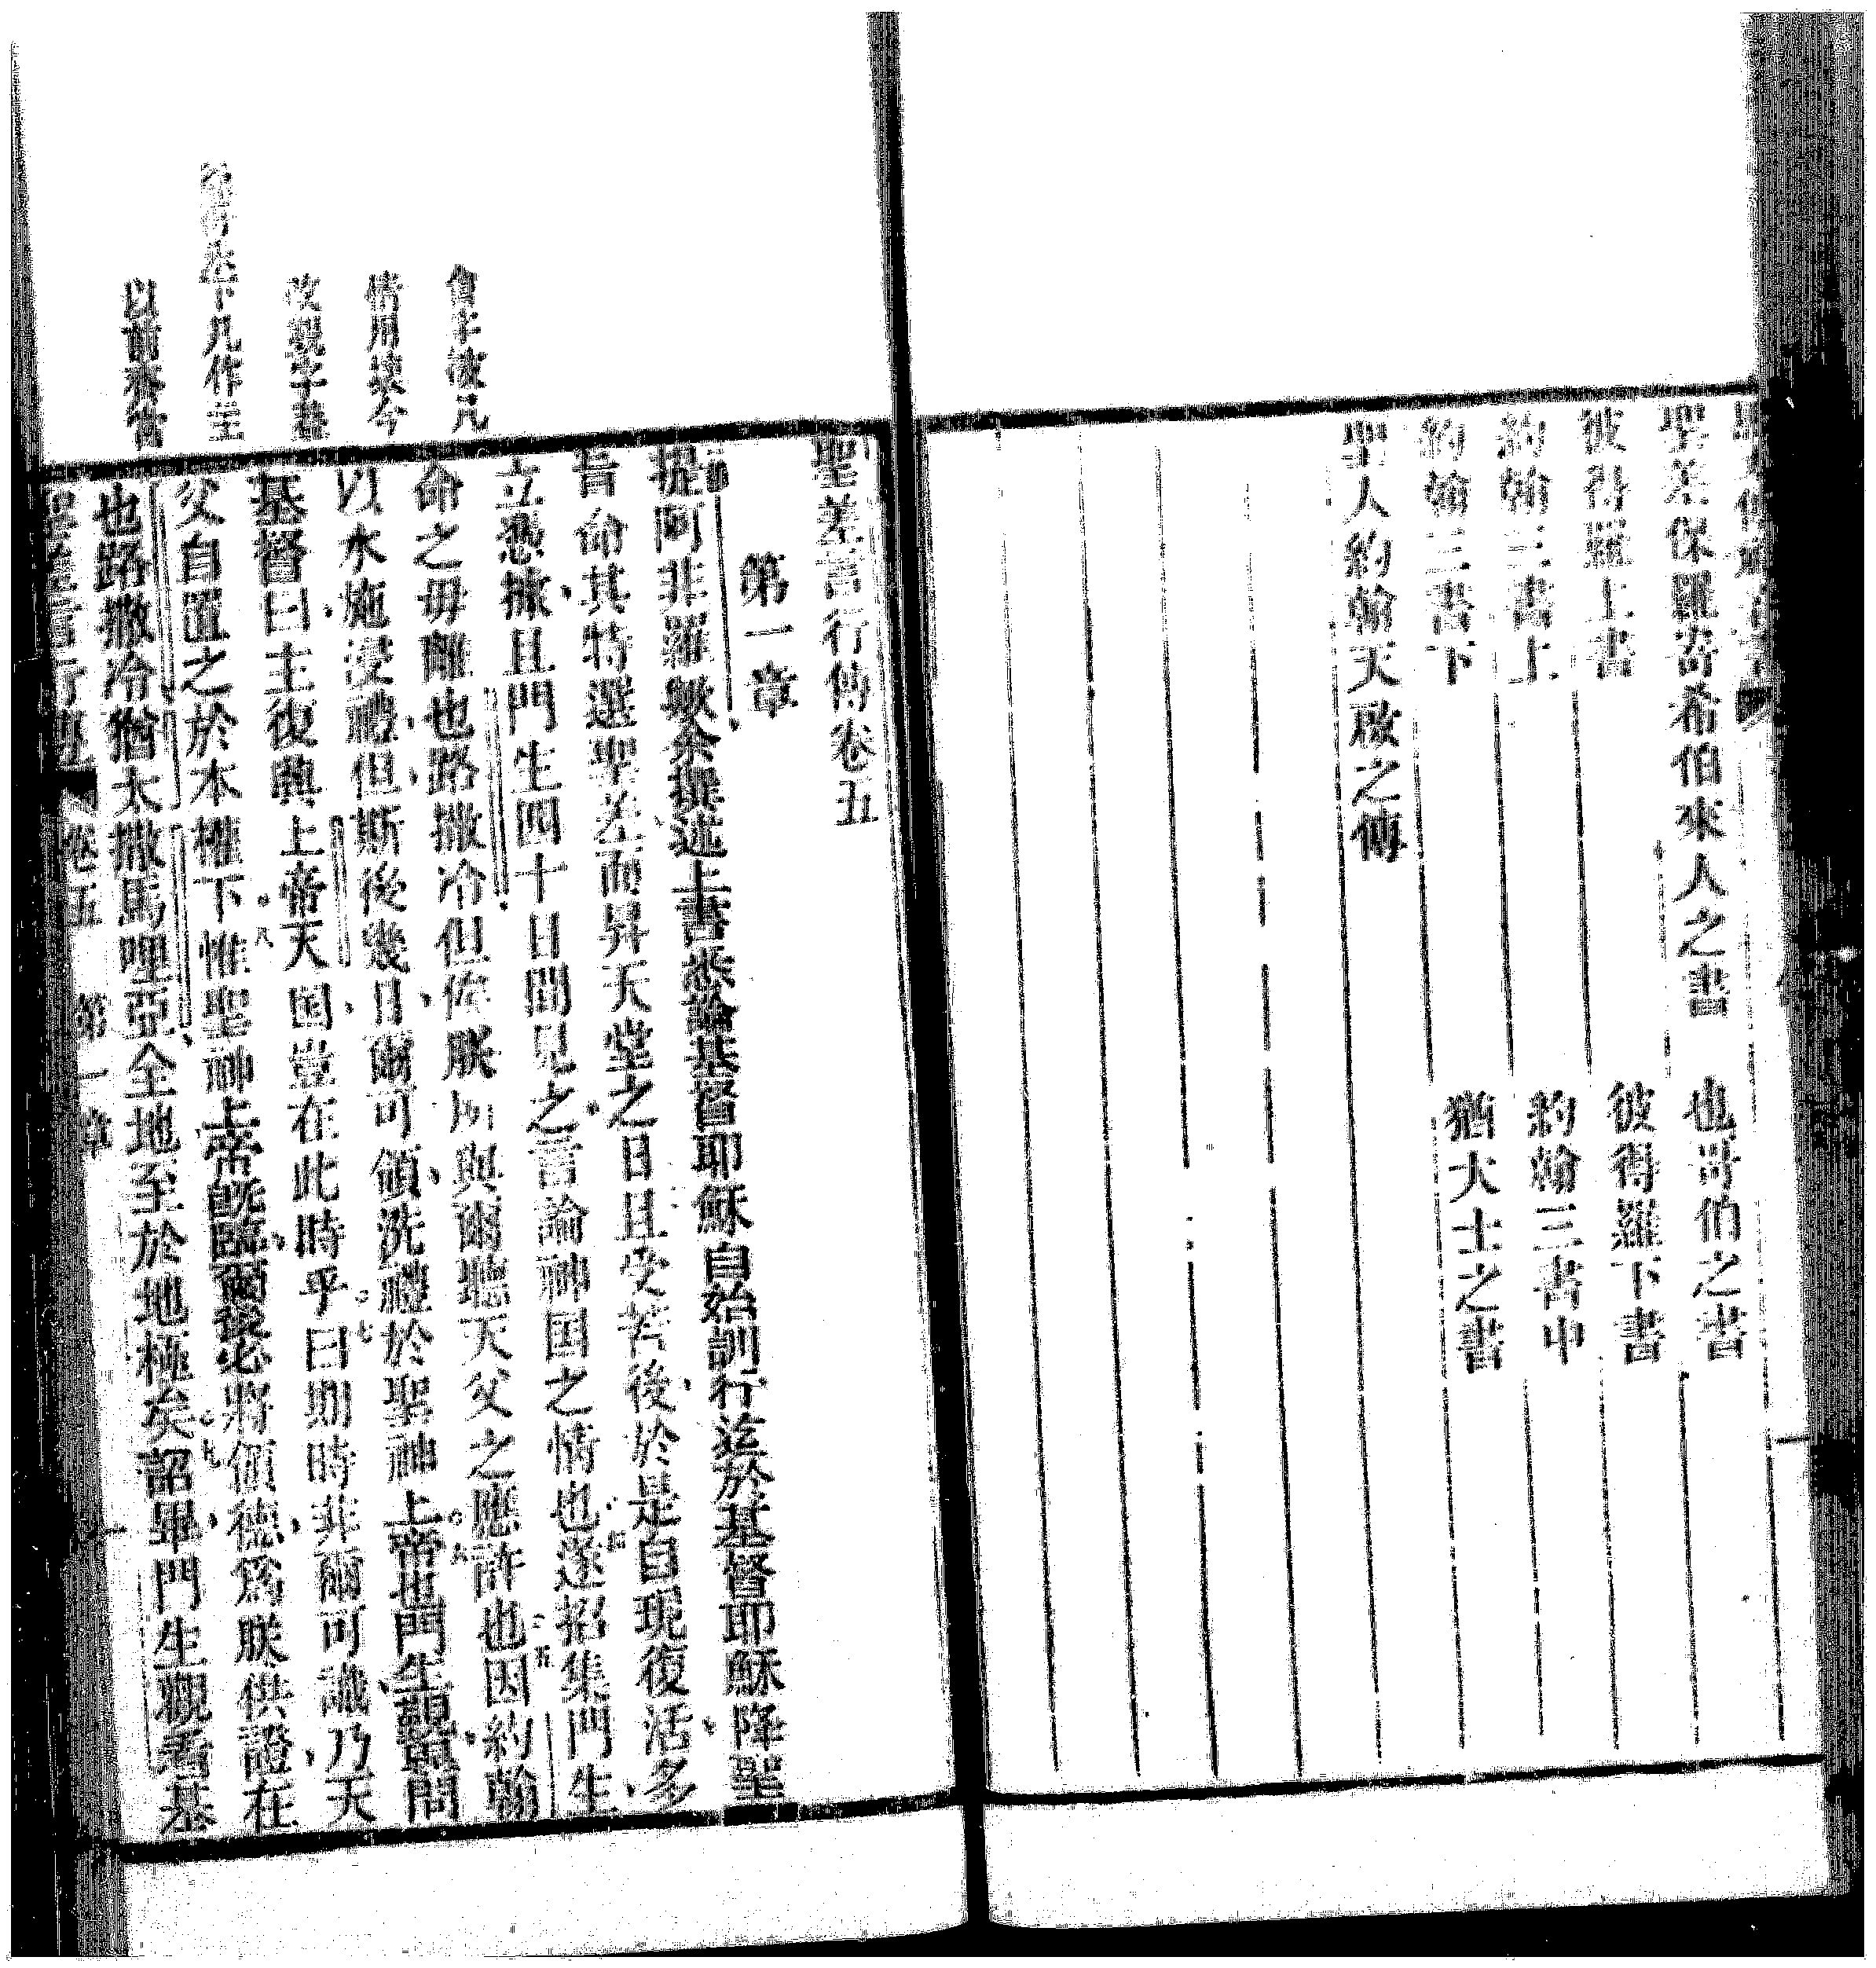 聖差保羅寄希伯來人之書　也哥伯之書
彼得羅上書　彼得羅下書
約翰三書上　約翰三書中
約翰三書下　猶大士之書
聖人約翰天啟之傳
聖差言行傳卷五
第一章
提阿非羅歟余撰述上書悉論基督耶穌自始訓行迄於基督耶穌降聖
旨命其特選聖差而昇天堂之日且受苦後於是自現復活多
立憑據且門生四十日間見之言論神国之情也四遂招集門生
命之毋離也路撒冷但俟朕所與爾聽天父之應許也五因約翰
以水施浸禮但斯後幾日爾可領洗禮於聖神上帝也六門生間問
基督曰主復興上帝天国豈在此時乎七曰期時非爾可識乃天
父自置之於本權下八惟聖神上帝旣臨爾後必將領德爲朕供證在
也路撒冷猶太撒馬哩亞全地至於地極矣九詔畢門生觀看基
聖差言行傳　卷五　第一章　一
下凡作主
以前